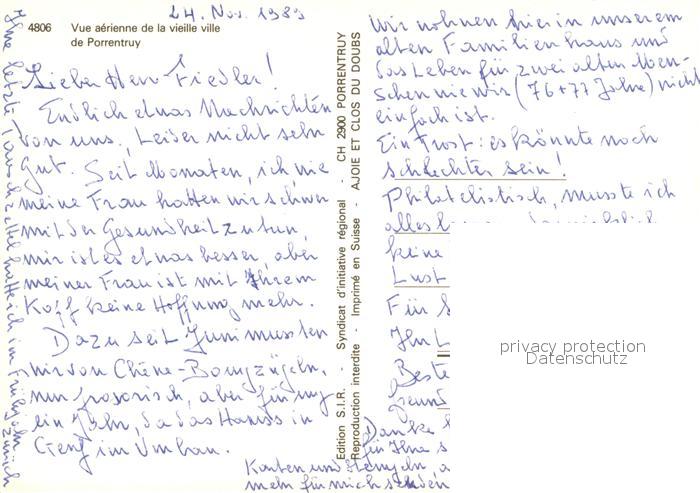 24. Nov. 1989
4806 Vue aérienne de la vieille ville
de Porrentruy
Lieber Herr Fiedler!
Endlich etwas Nachrichten
von uns. Leider nicht sehr
gut. Seit Monaten, ich wie
meine Frau hatten wir schwer
mit der Gesundheit zu tun,
mir ist es etwas besser, aber
meiner Frau ist mit Ihrem
Kopf keine Hoffnung mehr.
Dazu seit Juni mussten
wir von Chêne-Bourg zügeln,
nur provisorisch, aber für
ein Jahr, da das Haus in
Genf im Umbau.
Edition S.I.R. - Syndicat d'initiative régional - CH 2900 PORRENTRUY
Reproduction interdite - Imprimé en Suisse - AJOIE ET CLOS DU DOUBS
Wir wohnen hier in unserem
alten Familienhaus und
das Leben für zwei alten Men-
schen wie wir (76+77 Jahre) nicht
einfach ist.
Ein Trost: es könnte noch
schlechter sein!
Philatelistisch, musste ich
alles
keine
Lust
Für
Ihn
Beste
Freund
Danke
für Ihre
Karten und Stempeln,
mehr für mich senden
Ihre letzte Tauschzettel hatte ich im Frühjahr zurück
privacy protection
Datenschutz